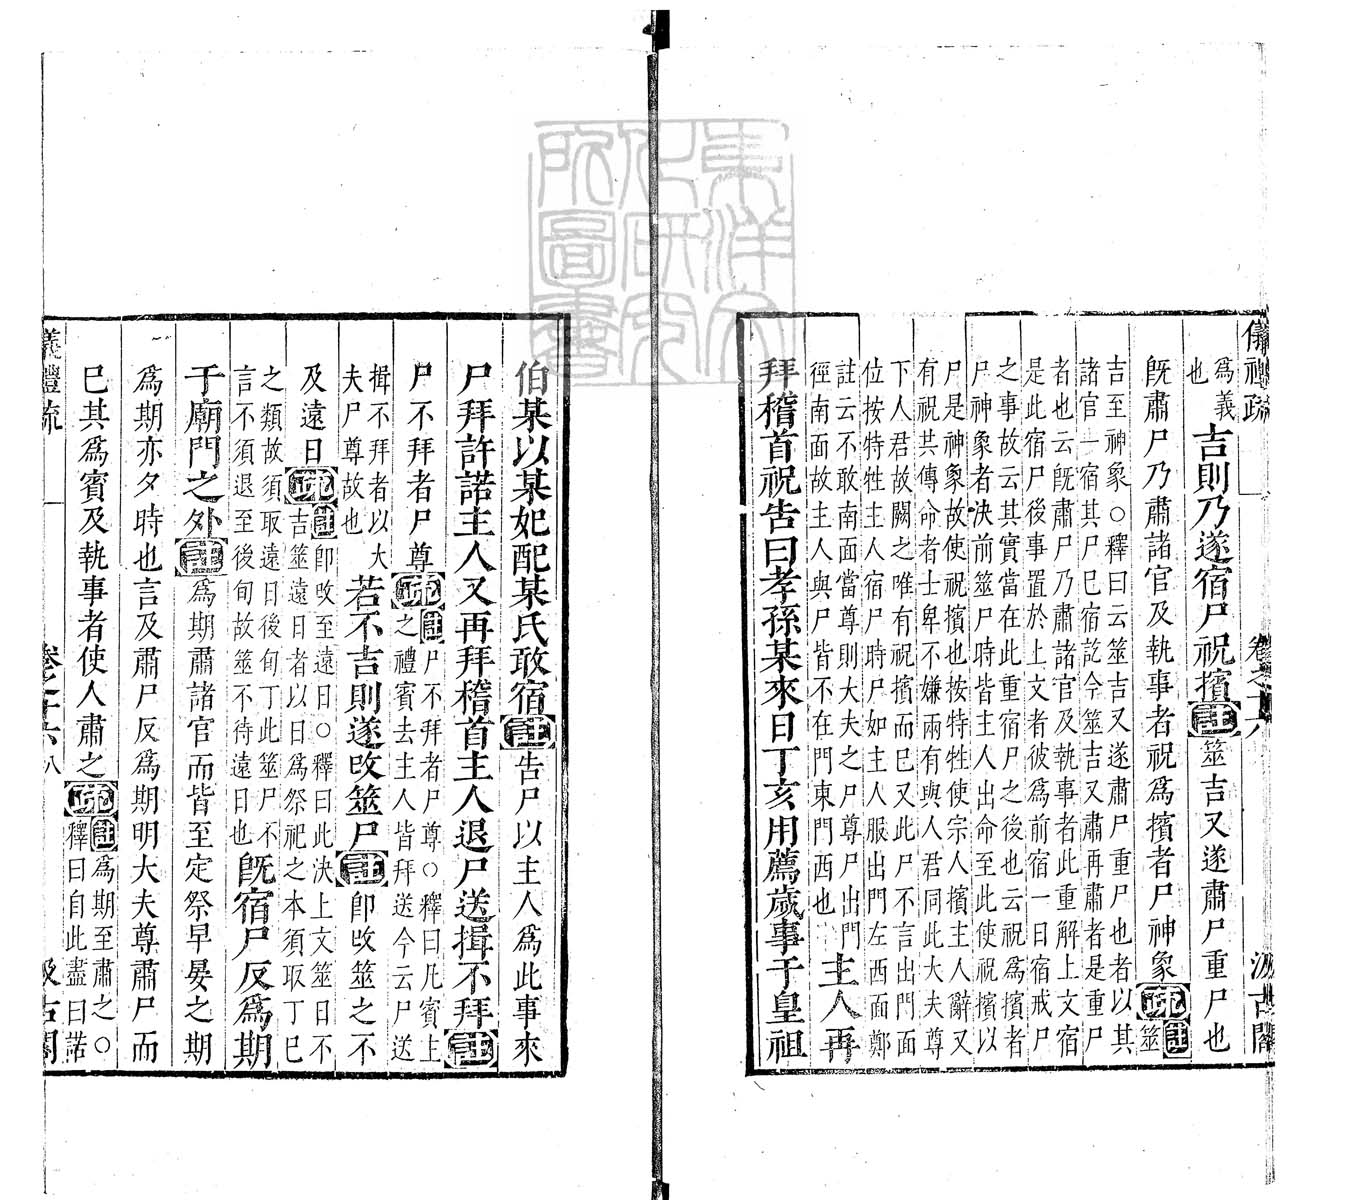 儀禮疏 卷之十六 汲古閣
爲義
也
吉則乃遂宿尸祝擯註筮吉又遂肅尸重尸也
旣肅尸乃肅諸官及執事者祝爲擯者尸神象疏註筮
吉至神象○釋曰云筮吉又遂肅尸重尸也者以其
諸官一宿其尸巳宿訖今筮吉又肅再肅者是重尸
者也云旣肅尸乃肅諸官及執事者此重解上文宿
是此宿尸後事置於上文者彼爲前宿一日宿戒尸
之事故云其實當在此重宿尸之後也云祝爲擯者
尸神象者決前筮尸時皆主人出命至此使祝擯以
尸是神象故使祝擯也按特牲使宗人擯主人辭又
有祝共傳命者士卑不嫌兩有與人君同此大夫尊
下人君故闕之唯有祝擯而巳又此尸不言出門面
位按特牲主人宿尸時尸如主人服出門左西面鄭
註云不敢南面當尊則大夫之尸尊尸出門
徑南面故主人與尸皆不在門東門西也
主人再
拜稽首祝告曰孝孫某來日丁亥用薦歲事于皇祖
伯某以某妃配某氏敢宿註告尸以主人爲此事來
尸拜許諾主人又再拜稽首主人退尸送揖不拜註
尸不拜者尸尊疏註尸不拜者尸尊○釋曰凡賓上
之禮賓去主人皆拜送今云尸送
揖不拜者以大
夫尸尊故也
若不吉則遂改筮尸註卽改筮之不
及遠日疏註卽改至遠日○釋曰此決上文筮日不
吉筮遠日者以日爲祭祀之本須取丁巳
之類故須取遠日後旬丁此筮尸不
言不須退至後旬故筮不待遠日也
旣宿尸反爲期
于廟門之外註爲期肅諸官而皆至定祭早晏之期
爲期亦夕時也言及肅尸反爲期明大夫尊肅尸而
巳其爲賓及執事者使人肅之疏註爲期至肅之○
釋曰自此盡曰諾
儀禮疏 卷之十六 八 汲古閣
東洋文
化研究
所圖書